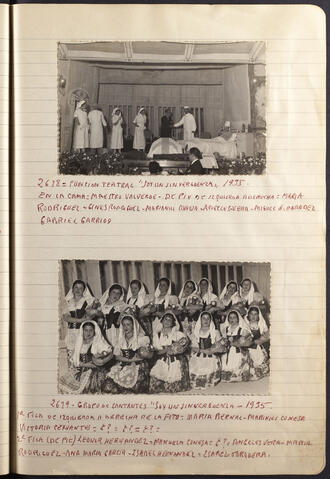 2638 = FUNCION TEATRAL "SOY UN SINVERGUENZA", 1935.
EN LA CAMA = MAESTRO VALVERDE - DE PIE DE IZQUIERDA A DERECHA = MARIA
RODRIGUEZ - GINES RODRIGUEZ - MARIANO - ANGELES - MIGUEL HERNANDEZ
GABRIEL GARRIDO
2639 - GRUPO DE CANTANTES "SOY UN SINVERGUENZA - 1935.
1ª FILA DE IZQUIERDA A DERECHA DE LA FOTO = MARIA BERNAL - MARIANO CONESA
VICTORIA CERVANTES = ¿? = ¿? = ¿? =
2ª FILA (DE PIE) LEONOR HERNANDEZ - MANUELA CONESA = ¿?, ANGELES VERA - MARIA
RODRIGUEZ - ANA MARIA GARCIA - ISABEL HERNANDEZ - ISABEL